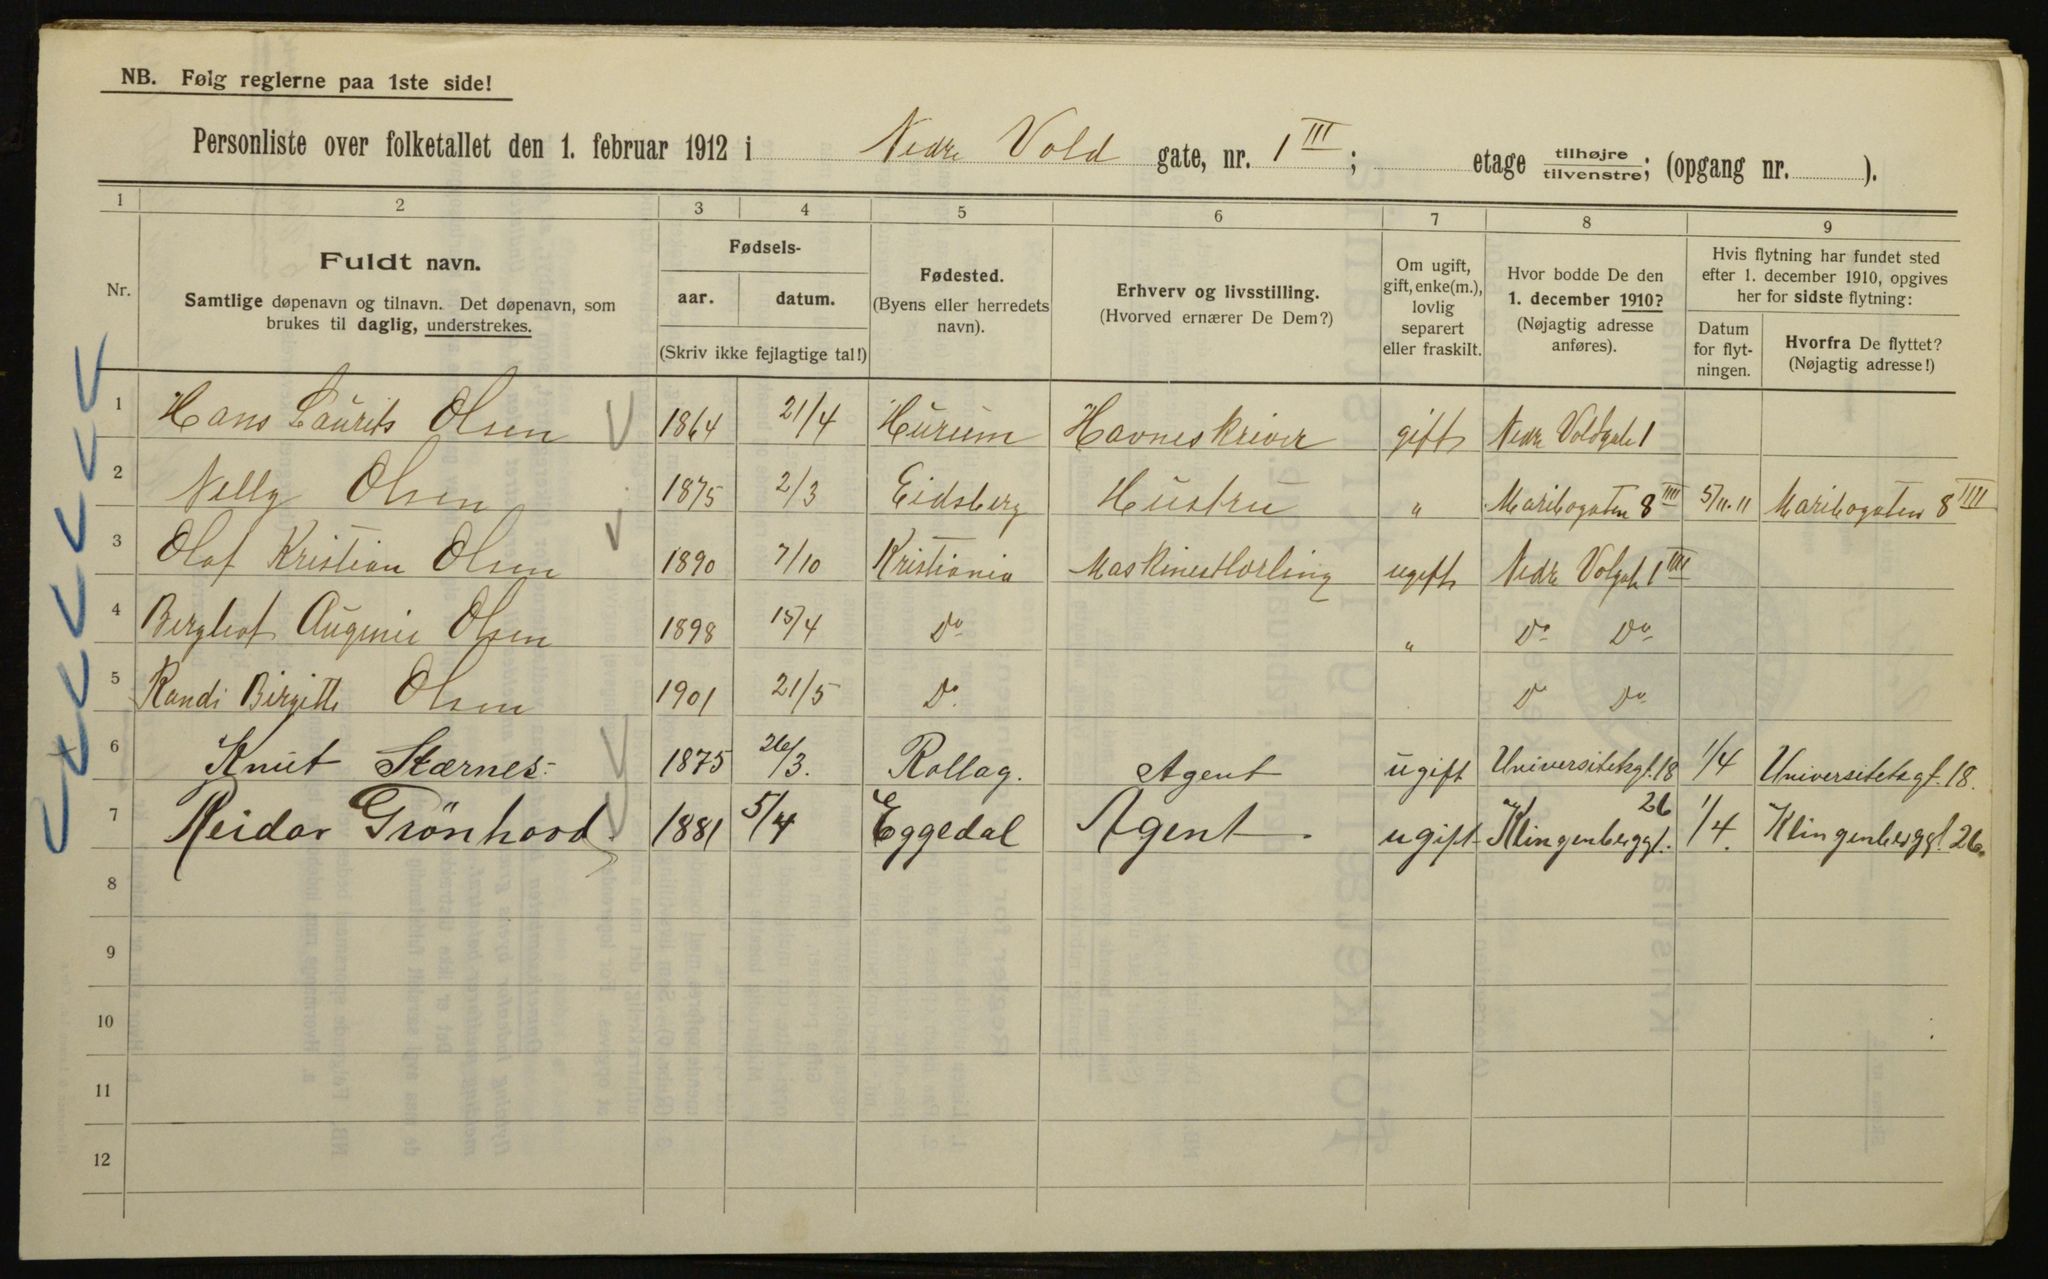 NB. Følg reglerne paa 1ste side!
Personliste over folketallet den 1. februar 1912 i Nedre Vold gate, nr. 1 III; etage tilhøjre/tilvenstre; (opgang nr. ).
1 2 3 4 5 6 7 8 9
Nr.
Fuldt navn.
Samtlige døpenavn og tilnavn. Det døpenavn, som
brukes til daglig, understrekes.
Fødsels-
aar. datum.
(Skriv ikke fejlagtige tal!)
Fødested.
(Byens eller herredets
navn).
Erhverv og livsstilling.
(Hvorved ernærer De Dem?)
Om ugift,
gift, enke(m.),
lovlig
separert
eller fraskilt.
Hvor bodde De den
1. december 1910?
(Nøjagtig adresse
anføres).
Hvis flytning har fundet sted
efter 1. december 1910, opgives
her for sidste flytning:
Datum
for flyt-
ningen.
Hvorfra De flyttet?
(Nøjagtig adresse!)
1 Hans Laurits Olsen 1864 21/4 Hurum Havneskriver gift Nedre Voldgate 1
2 Nelly Olsen 1875 2/3 Eidsberg Hustru " Maribogaten 8 IIII 5/11.11 Maribogaten 8 IIII
3 Olaf Kristian Olsen 1890 7/10 Kristiania Maskinestlærling ugift Nedre Volgate 1 III
4 Bergliot Augenie Olsen 1898 15/4 Do " Do Do
5 Randi Birgitte Olsen 1901 21/5 Do Do Do
6 Knut Stærnes 1875 26/3. Rollag. Agent ugift Universitetsgt. 18 1/4 Universitetsgt. 18.
7 Reidar Grönhovd 1881 5/4 Eggedal Agent. ugift Klingenberggt. 26 1/4. Klingenberggt. 26.
8
9
10
11
12